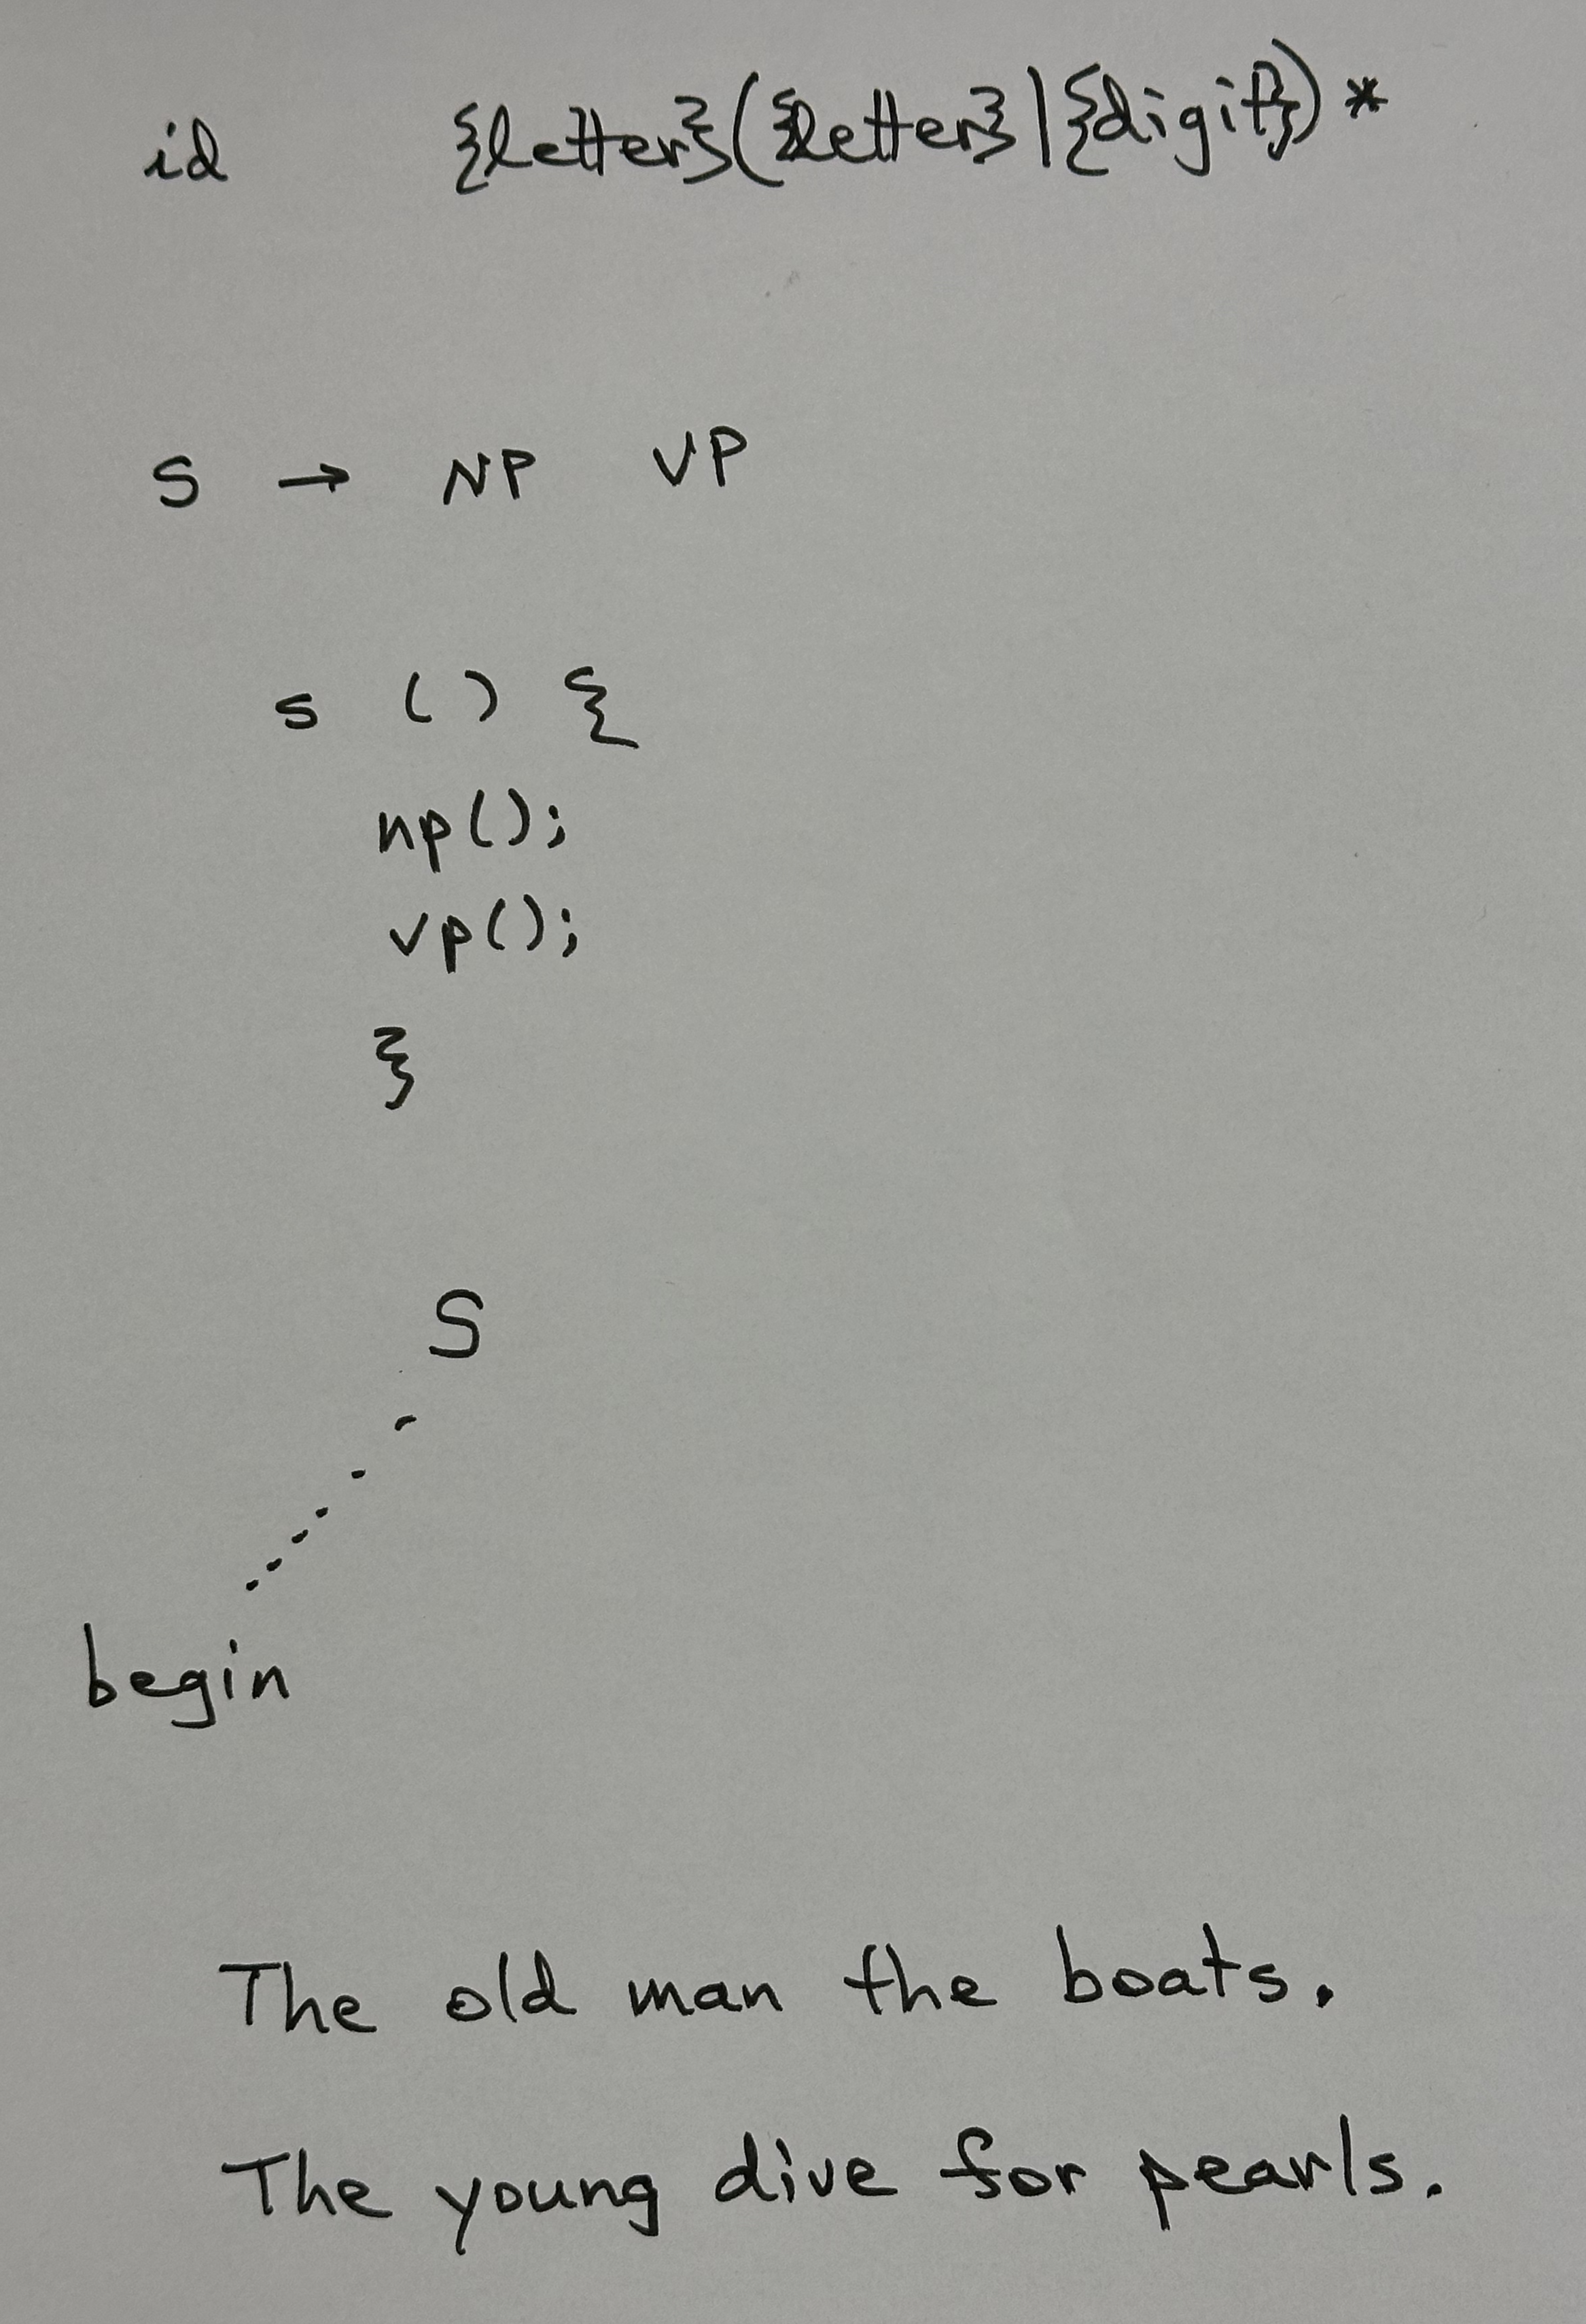 id {letter}({letter}|{digit})*
S → NP VP
s () {
np();
vp();
}
S
begin
The old man the boats.
The young dive for pearls.